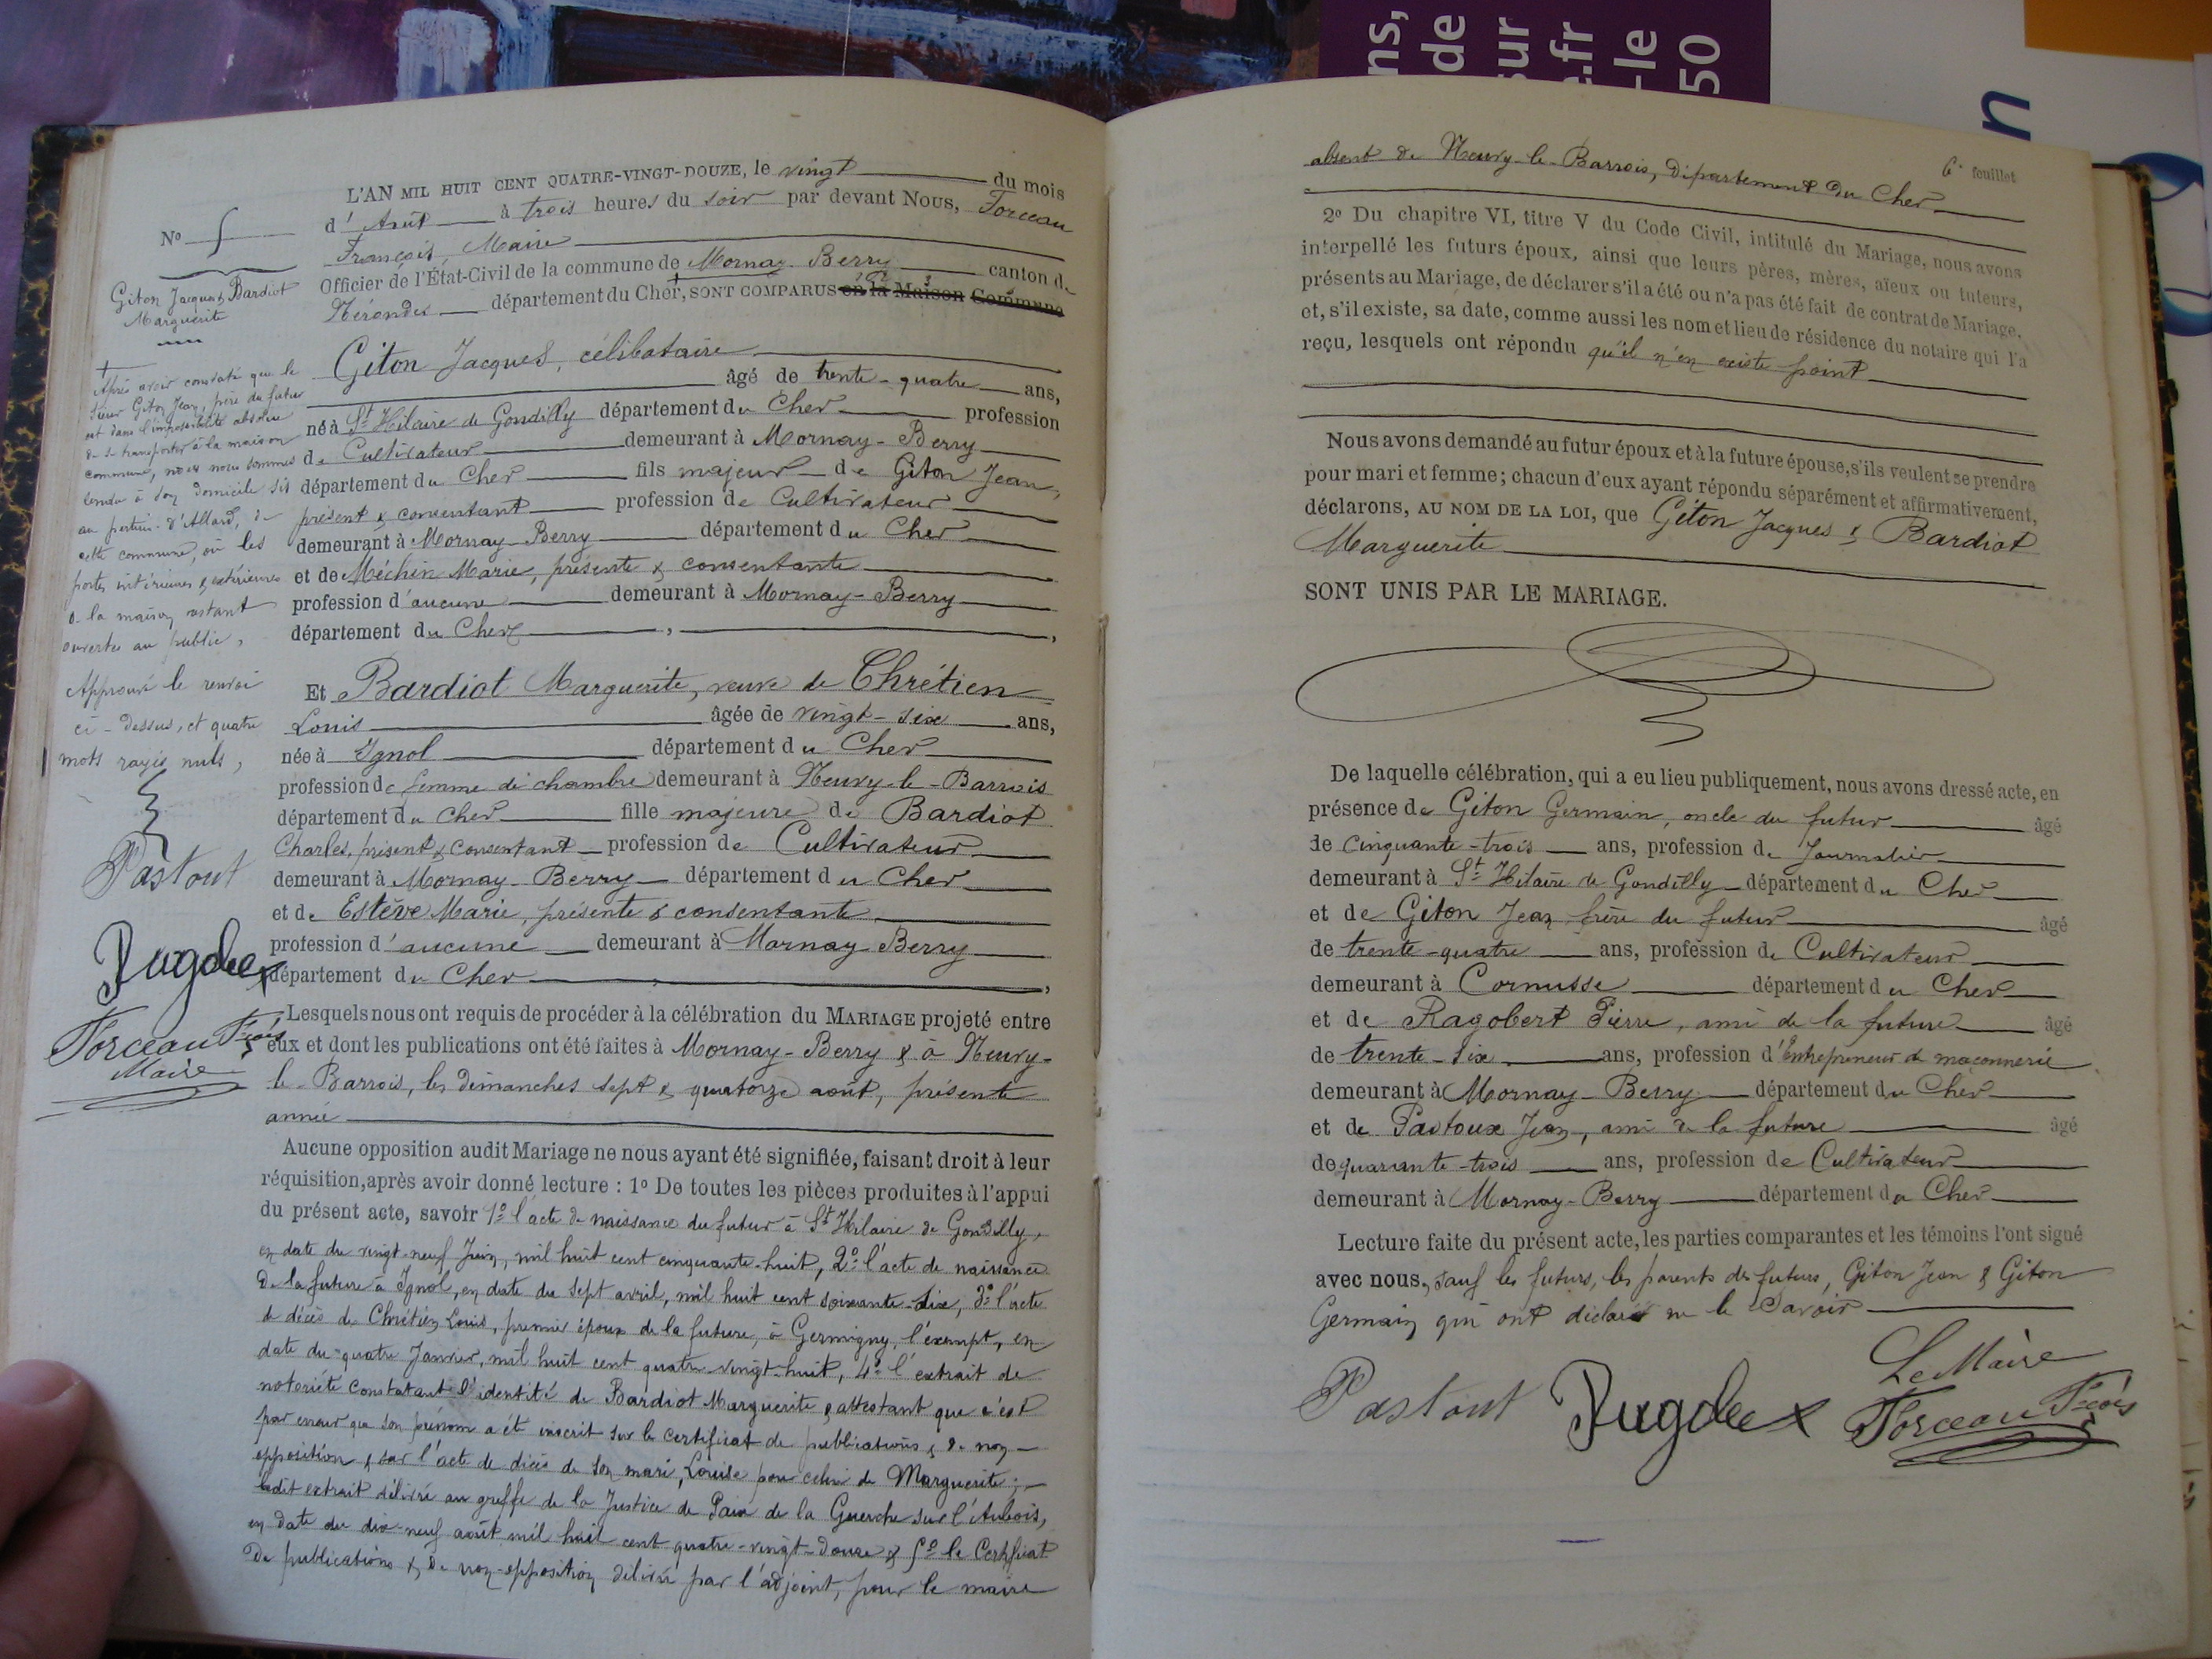 ns,
de
sur
e.fr
-le
50
n
L'AN MIL HUIT CENT QUATRE-VINGT-DOUZE, le vingt du mois
d'Août à trois heures du soir par devant Nous, Torceau
François, Maire
Officier de l'État-Civil de la commune de Mornay-Berry canton de
Nérondes département du Cher, + SONT COMPARUS en la Maison Commune
Giton Jacques, célibataire
âgé de trente-quatre ans,
né à St Hilaire de Gondilly département du Cher profession
de Cultivateur demeurant à Mornay-Berry
département du Cher fils majeur de Giton Jean,
présent & consentant profession de Cultivateur
demeurant à Mornay-Berry département du Cher
et de Méchin Marie, présente & consentante
profession d'aucune demeurant à Mornay-Berry
département du Cher,
Et Bardiot Marguerite, veuve de Chrétien
Louis âgée de vingt-six ans,
née à Ignol département du Cher
profession de femme de chambre demeurant à Neuvy-le-Barrois
département du Cher fille majeure de Bardiot
Charles, présent & consentant profession de Cultivateur
demeurant à Mornay-Berry département du Cher
et de Estève Marie, présente & consentante
profession d'aucune demeurant à Mornay-Berry
département du Cher,
Lesquels nous ont requis de procéder à la célébration du MARIAGE projeté entre
eux et dont les publications ont été faites à Mornay-Berry & à Neuvy-
le-Barrois, les dimanches sept & quatorze août, présente
année
Aucune opposition audit Mariage ne nous ayant été signifiée, faisant droit à leur
réquisition, après avoir donné lecture : 1º De toutes les pièces produites à l'appui
du présent acte, savoir 1º l'acte de naissance du futur à St Hilaire de Gondilly,
en date du vingt-neuf Juin, mil huit cent cinquante-huit, 2º l'acte de naissance
de la future à Ignol, en date du sept avril, mil huit cent soixante-six, 3º l'acte
de décès de Chrétien Louis, premier époux de la future, à Germigny l'exempt, en
date du quatre Janvier, mil huit cent quatre-vingt-huit, 4º l'extrait de
notoriété constatant l'identité de Bardiot Marguerite & attestant que c'est
par erreur que son prénom a été inscrit sur le certificat de publications & de non-
opposition & sur l'acte de décès de son mari, Louise pour celui de Marguerite ;
ledit extrait délivré au greffe de la Justice de Paix de la Guerche sur l'Aubois,
en date du dix-neuf août mil huit cent quatre-vingt-douze, & 5º le Certificat
de publications & de non-opposition délivré par l'adjoint, pour le maire
Nº 5
Giton Jacques & Bardiot
Marguerite
+
Après avoir constaté que le
sieur Giton Jean, père du futur
est dans l'impossibilité absolue
de se transporter à la maison
commune, nous nous sommes
rendu à son domicile sis
au d'Allard, de
cette commune, où les
portes intérieures & extérieures
de la maison restant
ouvertes au public,
Approuvé le renvoi
ci-dessus, et quatre
mots rayés nuls,
Pastout
Torceau Fçois
Maire
6e feuillet
absent de Neuvy-le-Barrois, département du Cher
2º Du chapitre VI, titre V du Code Civil, intitulé du Mariage, nous avons
interpellé les futurs époux, ainsi que leurs pères, mères, aïeux ou tuteurs,
présents au Mariage, de déclarer s'il a été ou n'a pas été fait de contrat de Mariage,
et, s'il existe, sa date, comme aussi les nom et lieu de résidence du notaire qui l'a
reçu, lesquels ont répondu qu'il n'en existe point
Nous avons demandé au futur époux et à la future épouse, s'ils veulent se prendre
pour mari et femme ; chacun d'eux ayant répondu séparément et affirmativement,
déclarons, AU NOM DE LA LOI, que Giton Jacques & Bardiot
Marguerite
SONT UNIS PAR LE MARIAGE.
De laquelle célébration, qui a eu lieu publiquement, nous avons dressé acte, en
présence de Giton Germain, oncle du futur âgé
de cinquante-trois ans, profession de Journalier
demeurant à St Hilaire de Gondilly département du Cher
et de Giton Jean frère du futur âgé
de trente-quatre ans, profession de Cultivateur
demeurant à Cornusse département du Cher
et de Ragobert Pierre, ami de la future âgé
de trente-six ans, profession d'Entrepreneur de maçonnerie
demeurant à Mornay-Berry département du Cher
et de Pastoux Jean, ami de la future âgé
de quarante-trois ans, profession de Cultivateur
demeurant à Mornay-Berry département du Cher
Lecture faite du présent acte, les parties comparantes et les témoins l'ont signé
avec nous, sauf les futurs, les parents des futurs, Giton Jean & Giton
Germain qui ont déclaré ne le savoir
Le Maire
Pastout Torceau Fçois